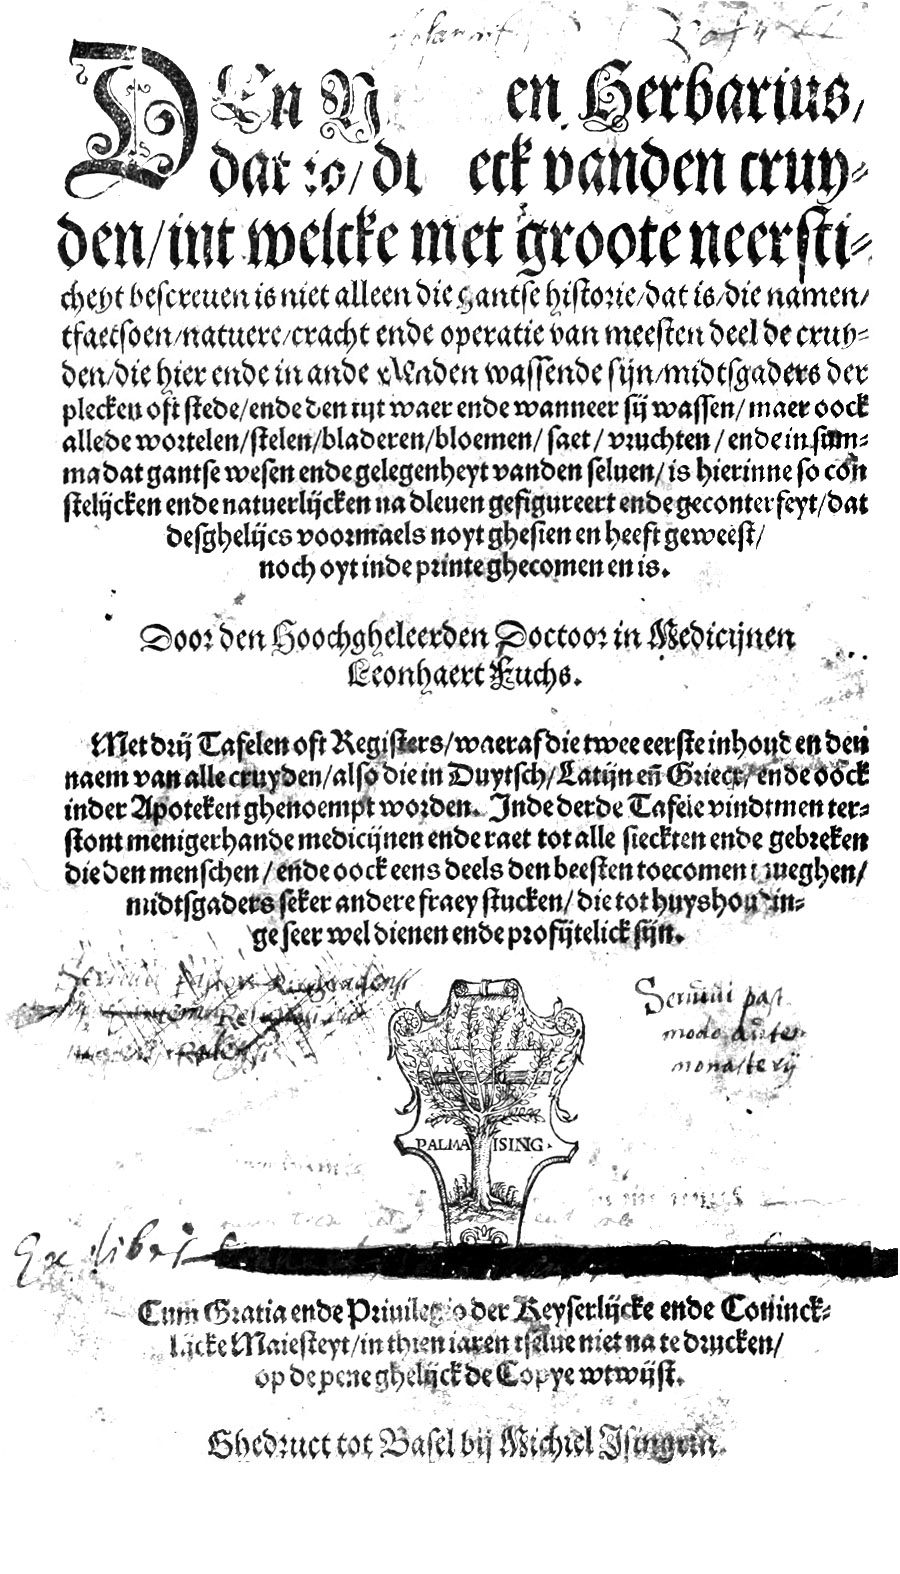 DEn N en Herbarius,
dat is/dt eck vanden cruy-
den/int welcke met groote neersti-
cheyt bescreven is niet alleen die gantse historie/dat is/die namen/
tfaetsoen/natuere/cracht ende operatie van meesten deel de cruy-
den/die hier ende in ande Landen wassende sijn/midtsgaders der
plecken oft stede/ende den tijt waer ende wanneer sij wassen/maer oock
allede wortelen/stelen/bladeren/bloemen/saet/vruchten/ende in sum-
ma dat gantse wesen ende gelegenheyt vanden seluen/is hierinne so con
stelijcken ende natuerlijcken na dleuen gefigureert ende geconterfeyt/dat
desghelijcs voormaels noyt ghesien en heeft geweest/
noch oyt inde printe ghecomen en is.
Door den Hoochgheleerden Doctoor in Medicijnen
Leonhaert Fuchs.
Met drij Tafelen oft Registers/waeraf die twee eerste inhoud en den
naem van alle cruyden/also die in Duytsch/Latijn eñ Griecx/ende oock
inder Apoteken ghenoempt worden. Inde derde Tafele vindtmen ter-
stont menigerhande medicijnen ende raet tot alle sieckten ende gebreken
die den menschen/ende oock eens deels den beesten toecomen meghen/
midtsgaders seker andere fraey stucken/die tot huyshoudin-
ge seer wel dienen ende profijtelick sijn.
Seruini past
modo autem
monasterij
PALMA ISING.
Ex libris
Cum Gratia ende Priuilegio der Keyserlijcke ende Coninck-
lijcke Maiesteyt/in thien iaren tselue niet na te drucken/
op de pene ghelijck de Copye wtwijst.
Ghedruct tot Basel bij Michiel Isingrin.